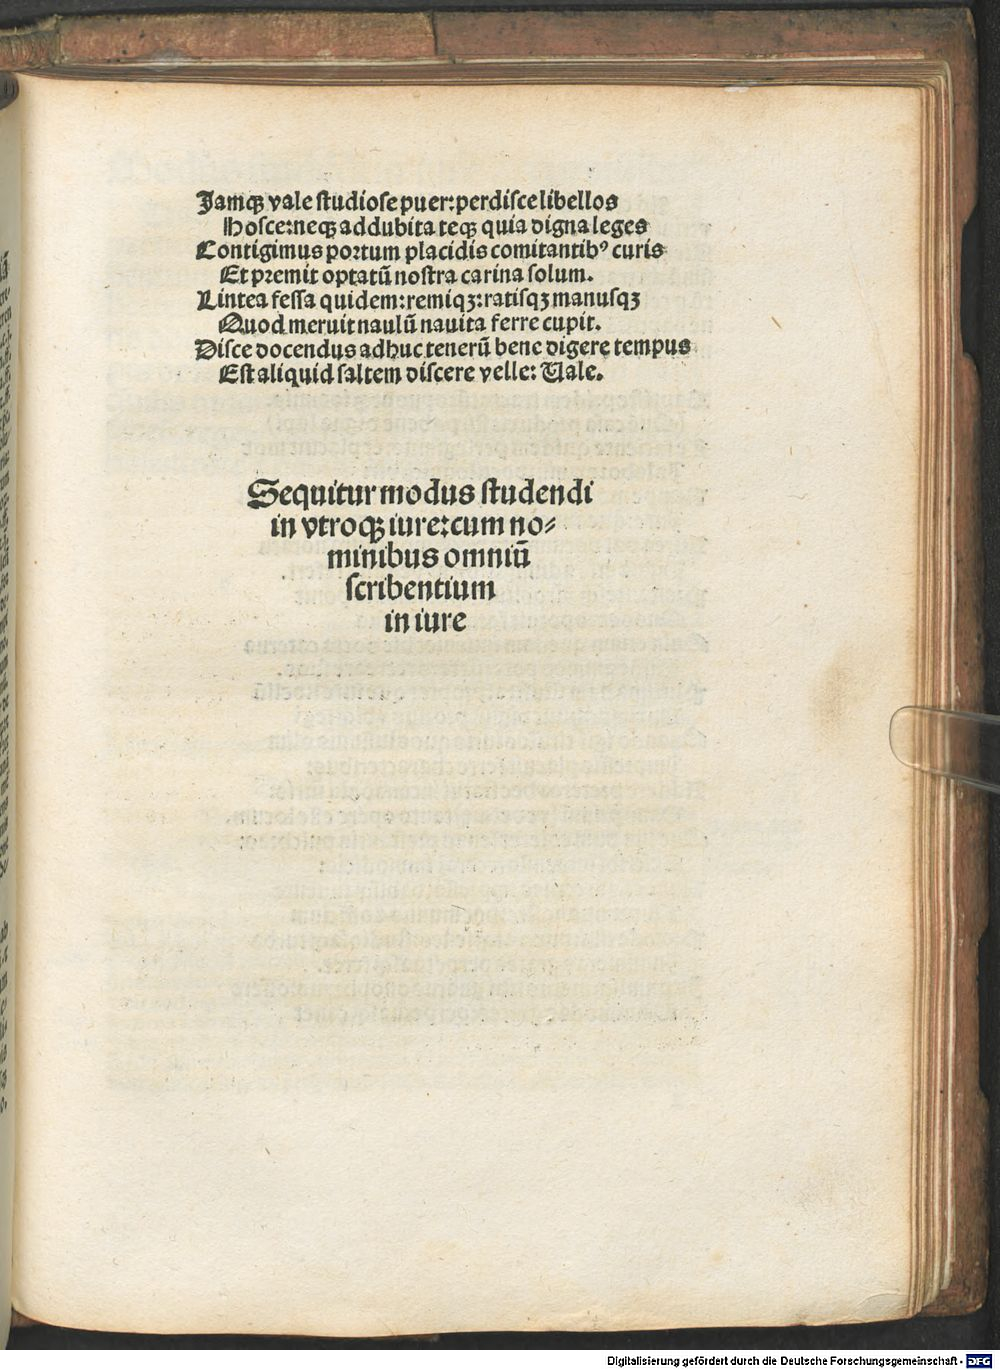 Jamqꝫ vale studiose puer: perdisce libellos
Hosce: neqꝫ addubita teqꝫ quia digna leges
Contigimus portum placidis comitantibꝰ curis
Et premit optatū nostra carina solum.
Lintea fessa quidem: remiqꝫ: ratisqꝫ manusqꝫ
Quod meruit naulū nauita ferre cupit.
Disce docendus adhuc tenerū bene digere tempus
Est aliquid saltem discere velle: Uale.
Sequitur modus studendi
in vtroqꝫ iure: cum no⸗
minibus omniū
scribentium
in iure
Digitalisierung gefördert durch die Deutsche Forschungsgemeinschaft - DFG